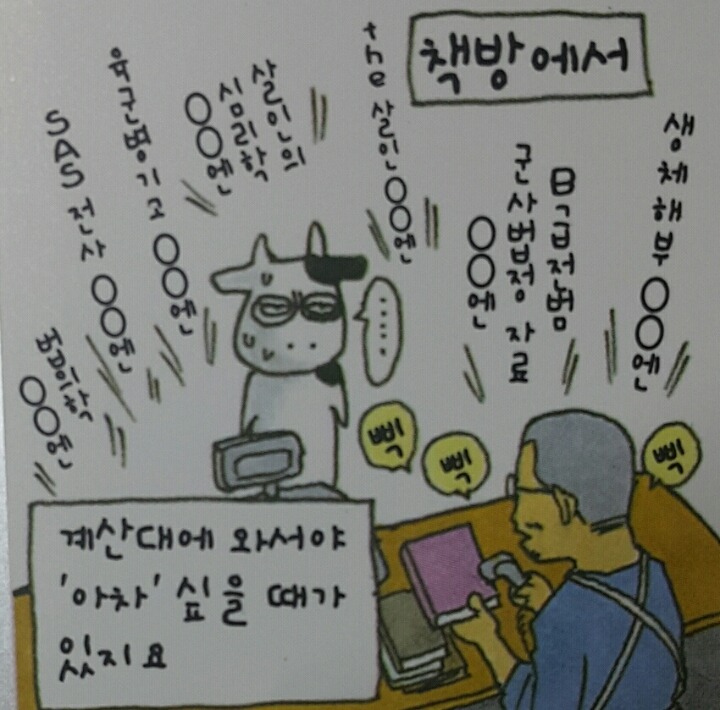 책방에서
the 살인 ○○엔
살인의
심리학
○○엔
육군병기고 ○○엔
SAS 전사 ○○엔
○○엔
B·C급 전범
군사법정 자료
○○엔
생체해부 ○○엔
.....
삑
삑
삑
계산대에 와서야
'아차' 싶을 때가
있지요